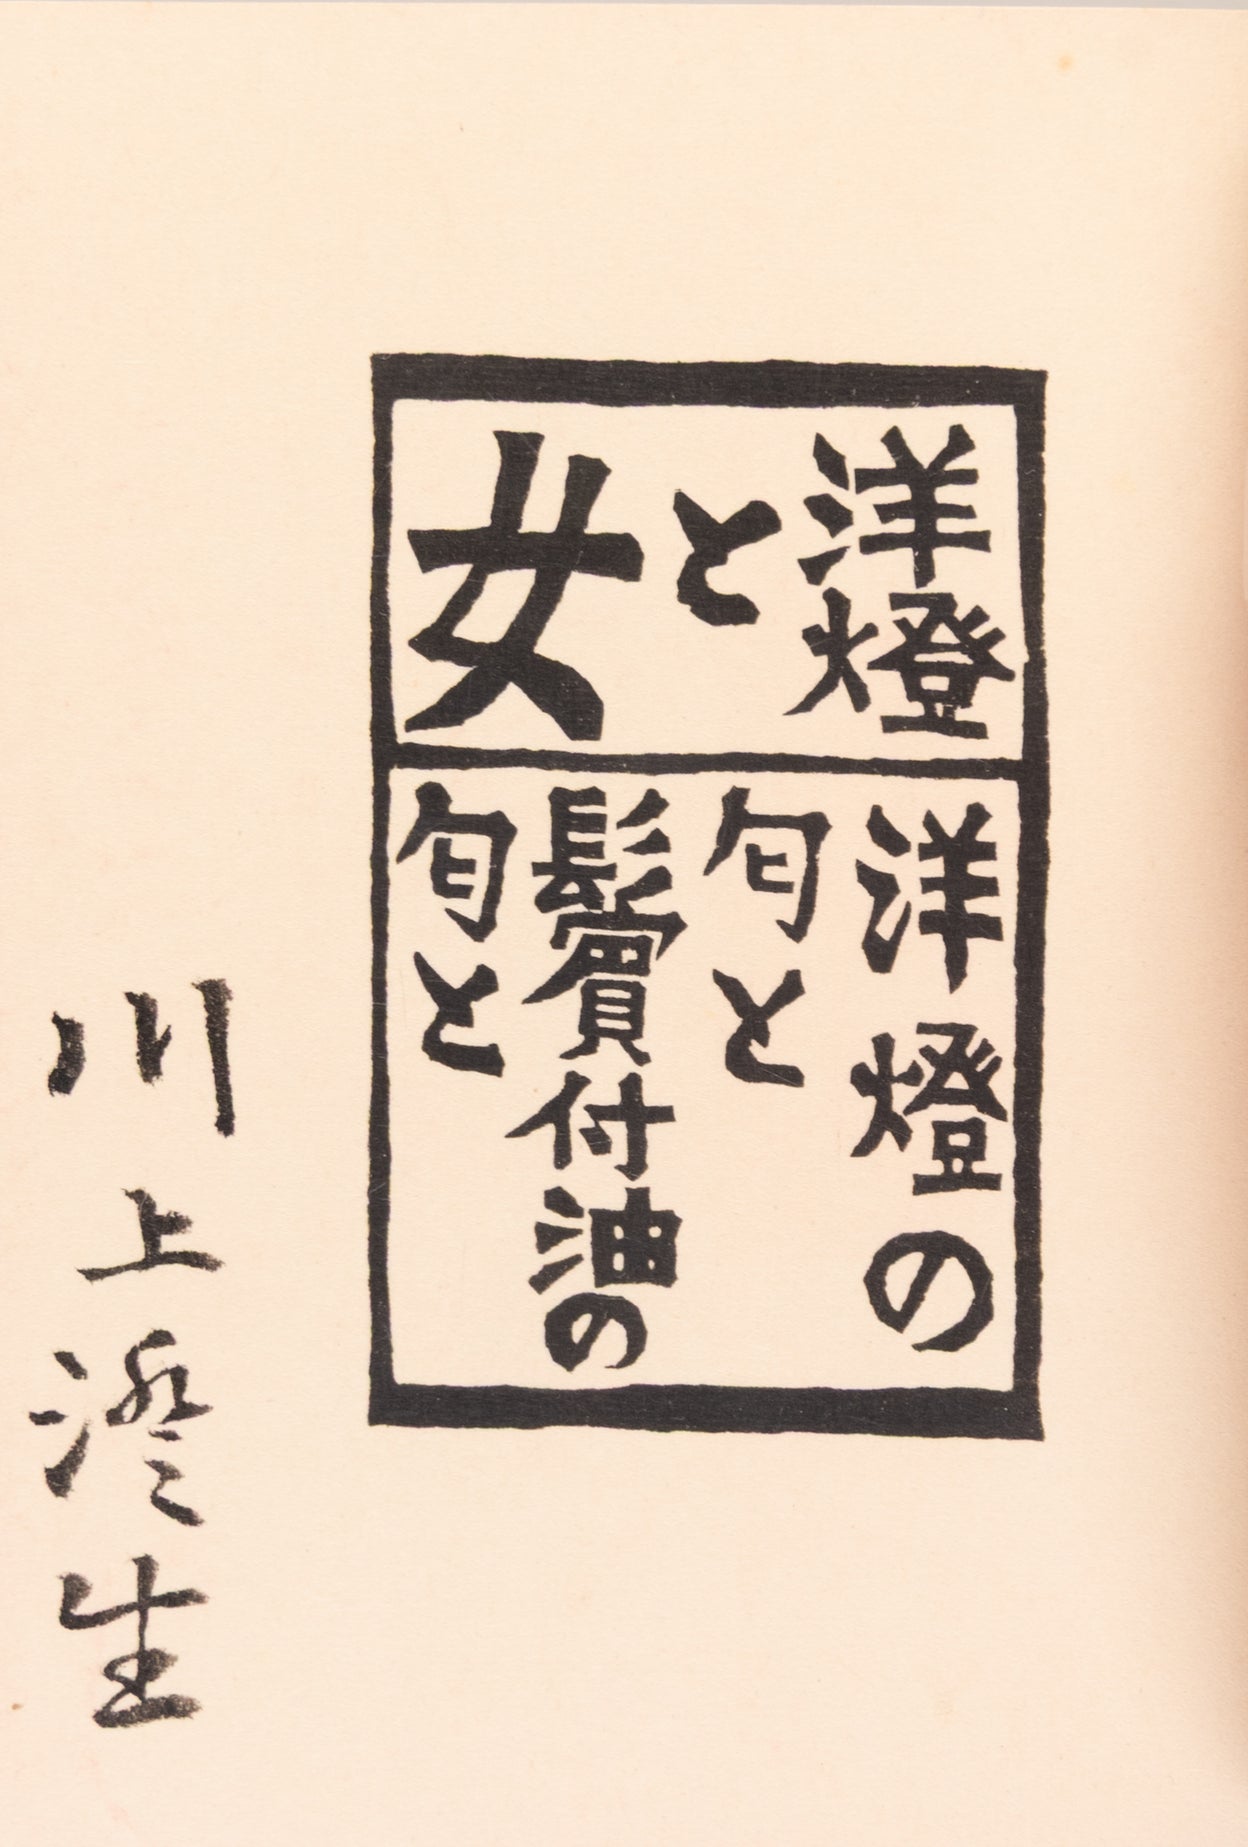 洋燈
と
女
洋燈の
匂と
鬢付油の
匂と
川上澄生